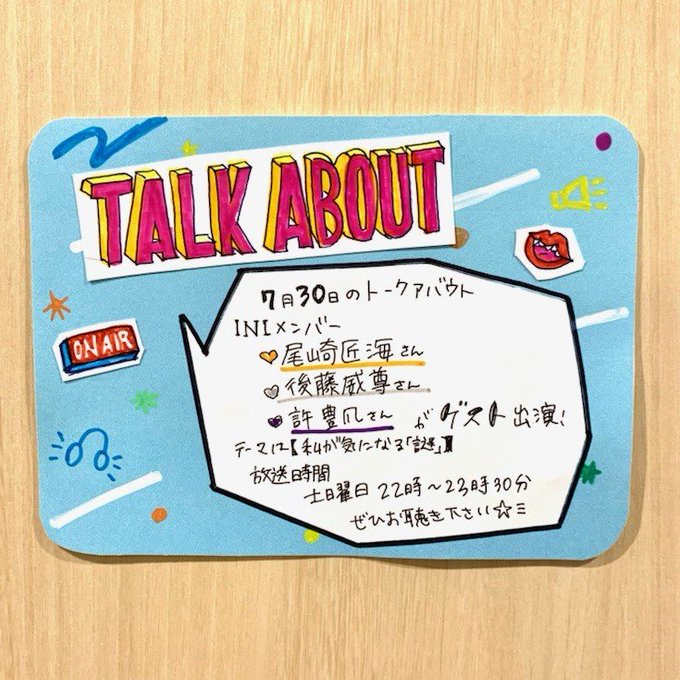 TALK ABOUT
ON AIR
7月30日のトークアバウト
INIメンバー
尾崎匠海さん
後藤威尊さん
許豊凡さんがゲスト出演!
テーマは【私が気になる「謎」】
放送時間
土曜日 22時~23時30分
ぜひお聴き下さい☆ミ